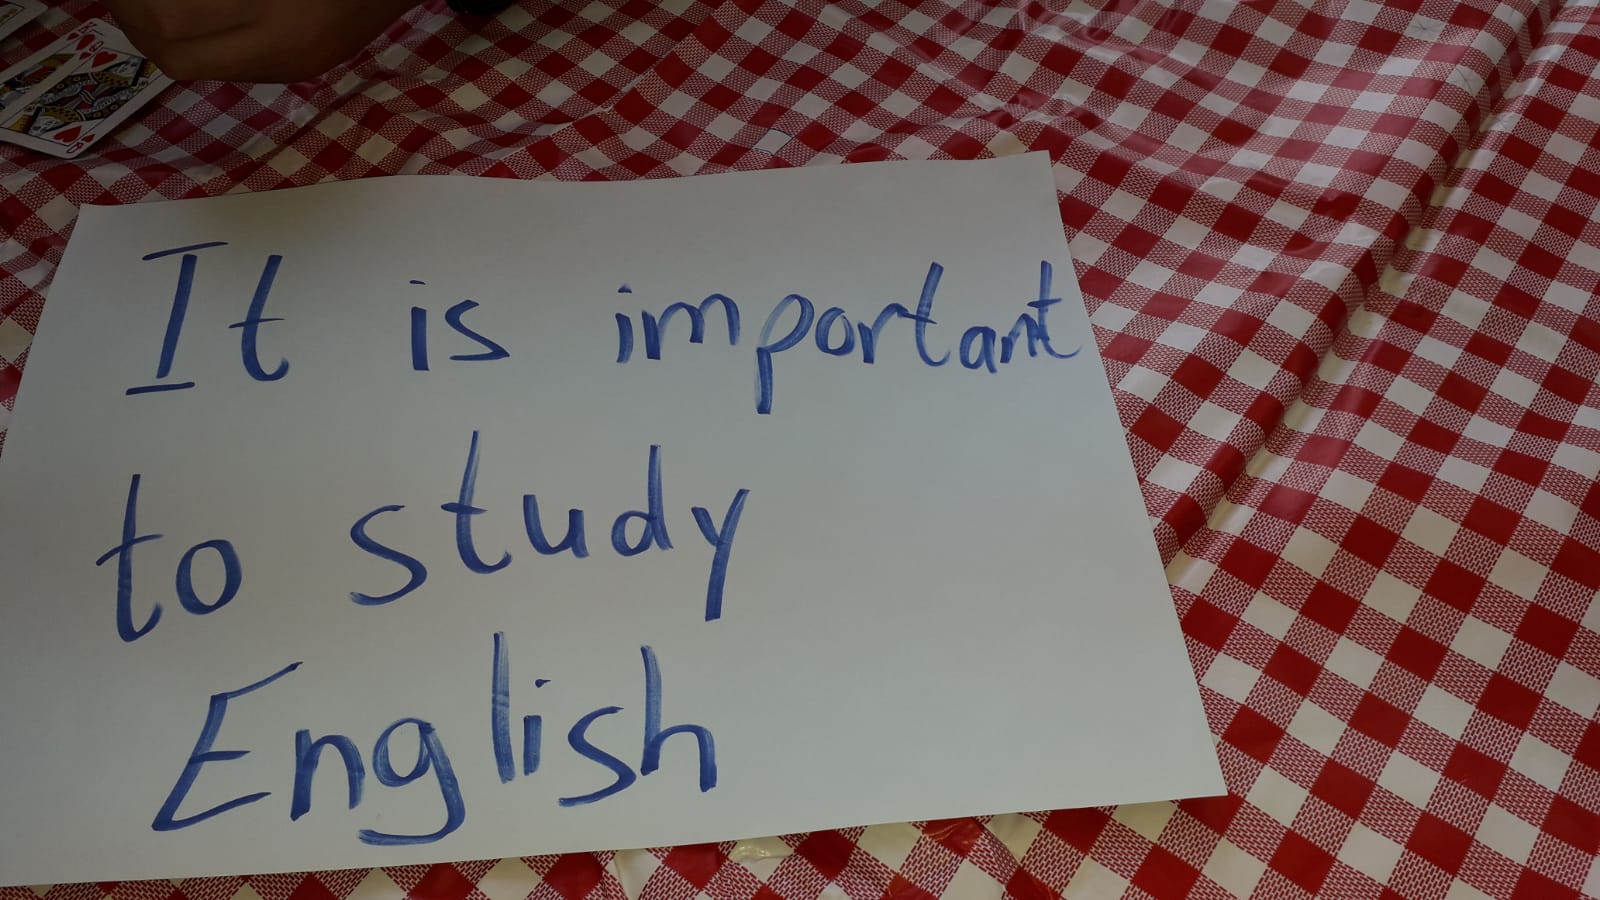 It is important
to study
English